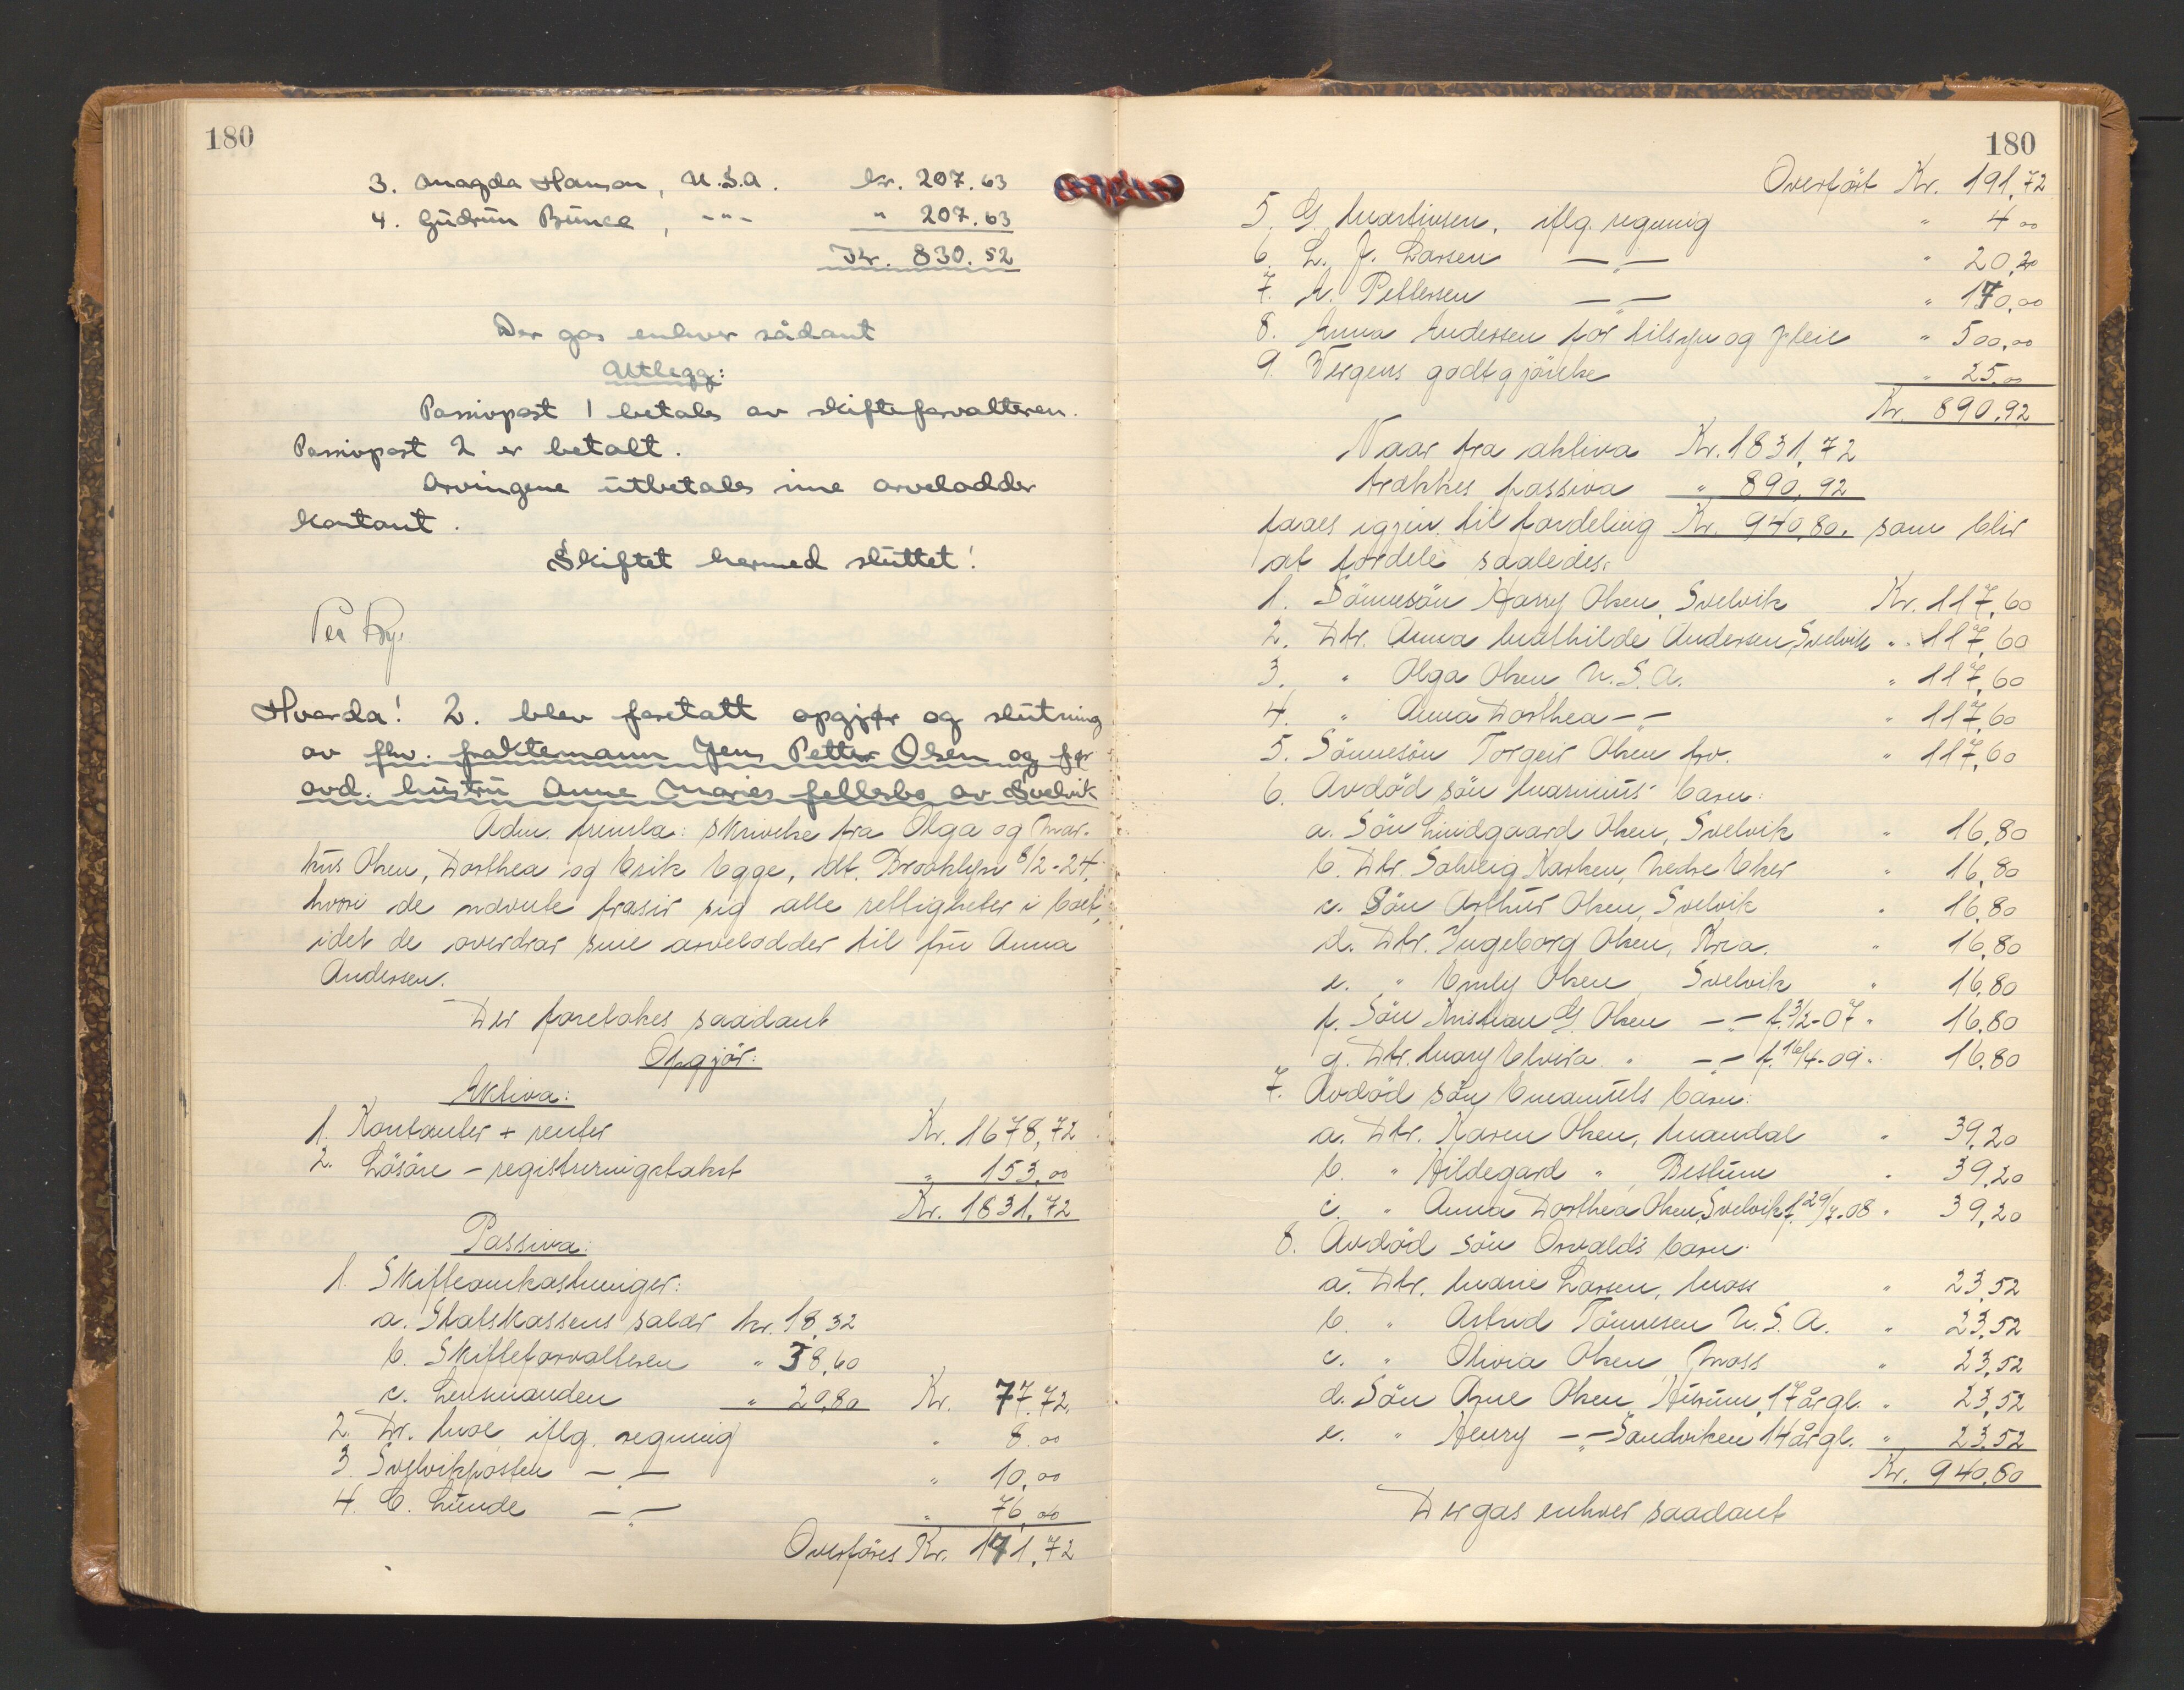 180
3. Magda Hanson, U.S.A. kr. 207.63
4. Gudrun Bunce, -"- " 207.63
Kr. 830.52
Der gas enhver sådant
Utlegg:
Passivpost 1 betales av skifteforvalteren.
Passivpost 2 er betalt.
Arvingene utbetales sine arvelodder
kontant.
Skiftet hermed sluttet!
Per Rye
Hvorda! 2. blev foretatt opgjør og slutning
av fhv. fraktemann Jens Petter Olsen og før
avd. hustru Anne Maries fellesbo av Svelvik
Adm. fremla: skrivelse fra Olga og Mar-
kus Olsen, Dorthea og Erik Egge, dt. Brooklyn 8/2-24,
hvori de ndvnte frasir sig alle rettigheter i boet,
idet de overdrar sine arvelodder til fru Anna
Andersen.
Der foretokes saadant
Opgjör:
Aktiva:
1. Kontanter + renter Kr. 1678,72
2. Lösöre - registreringstakst " 153,00
Kr. 1831,72
Passiva:
1. Skifteomkostninger:
a. Statskassens salær kr. 18,32
b. Skifteforvalteren " 38,60
c. Lensmanden " 20,80 Kr. 77,72
2. Dr. Moe iflg. regning " 8.00
3. Svelvikposten -"- " 10,00
4. C. Lunde -"- " 76,00
Overföres Kr. 191,72
180
Overfört Kr. 191,72
5. G. Martinsen, iflg. regning " 4 00
6. L. J. Larsen -"- " 20,20
7. A. Pettersen -"- " 170,00
8. Anna Andersen for tilsyn og pleie " 500,00
9. Vergens godtgjörelse " 25,00
Kr. 890,92
Naar fra aktiva Kr. 1831,72
trækkes passiva " 890,92
faaes igjen til fordeling Kr. 940,80, som blir
at fordele saaledes:
1. Sönnesön Harry Olsen, Svelvik Kr. 117,60
2. Dtr. Anna Mathilde Andersen, Svelvik " 117,60
3. " Olga Olsen U.S.A. " 117,60
4. " Anna Dorthea -"- " 117,60
5. Sönnesön Torgeir Olsen " 117,60
6. Avdöd sön Marinius' barn:
a. Sön Lindgaard Olsen, Svelvik " 16,80
b. Dtr. Solveig Karlsen, Nedre Eker " 16,80
c. Sön Arthur Olsen, Svelvik " 16,80
d. Dtr. Ingeborg Olsen, Kria. " 16,80
e. " Emly Olsen, Svelvik " 16,80
f. Sön Kristian G. Olsen -"- f. 3/2-07 " 16,80
g. Dtr. Mary Elvira " -"- f. 16/4-09 " 16,80
7. Avdöd sön Emanuels barn:
a. Dtr. Karen Olsen, Mandal " 39,20
b. " Hildegard " , Bestum " 39,20
c. " Anna Dorthea Olsen, Svelvik f. 29/7-08 " 39,20
8. Avdöd sön Osvalds barn:
a. Dtr. Marie Larsen, Moss " 23,52
b. " Astrid Tönnesen U.S.A. " 23,52
c. " Olivia Olsen, Moss " 23,52
d. Sön Arne Olsen, Hurum, 17 år gl. " 23,52
e. " Henry -"- Sandviken 14 år gl. " 23,52
Kr. 940,80
Der gas enhver saadant